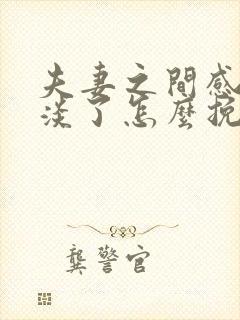 夫妻之間感
淡了怎麼挽
龔警官